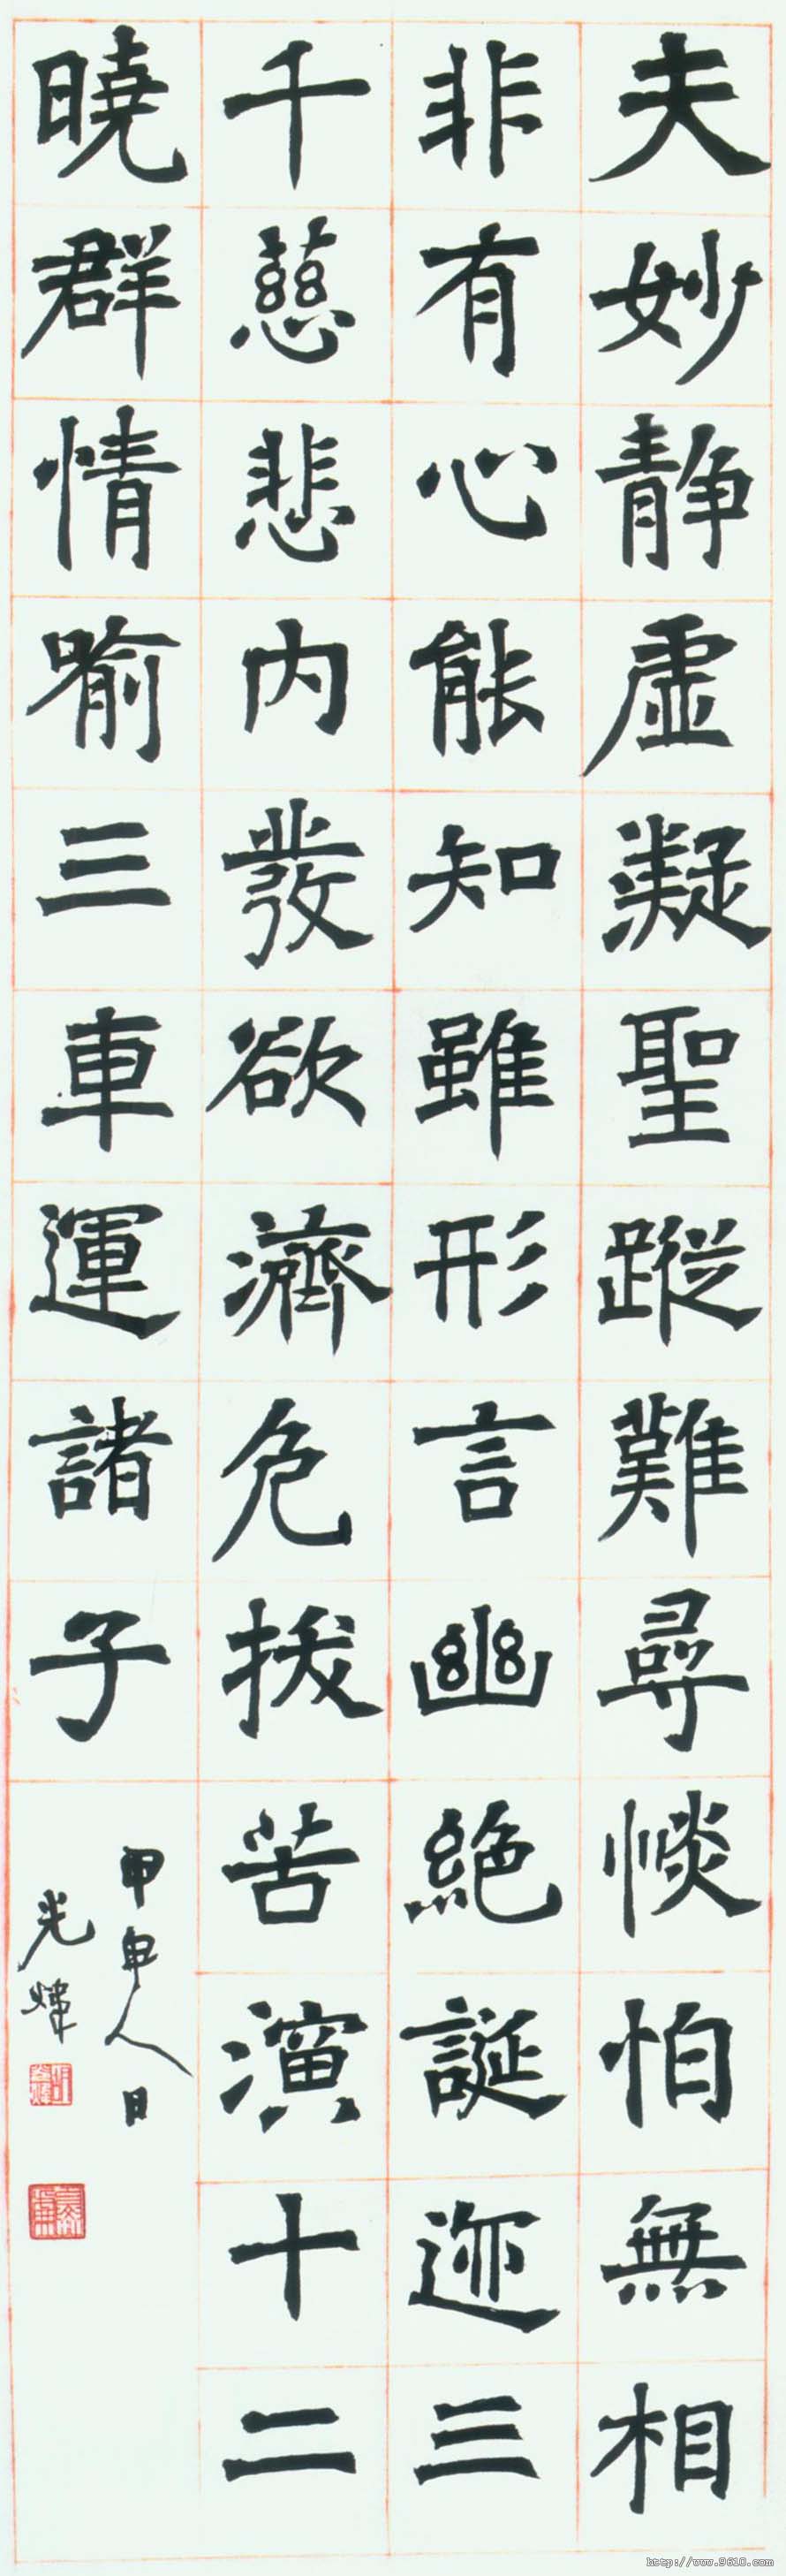 夫妙靜虛凝聖蹤難尋惔怕無相
非有心能知雖形言幽絕誕迹三
千慈悲內發欲濟危拔苦演十二
曉群情喻三車運諸子
甲申人日
光煒
http://www.9610.com